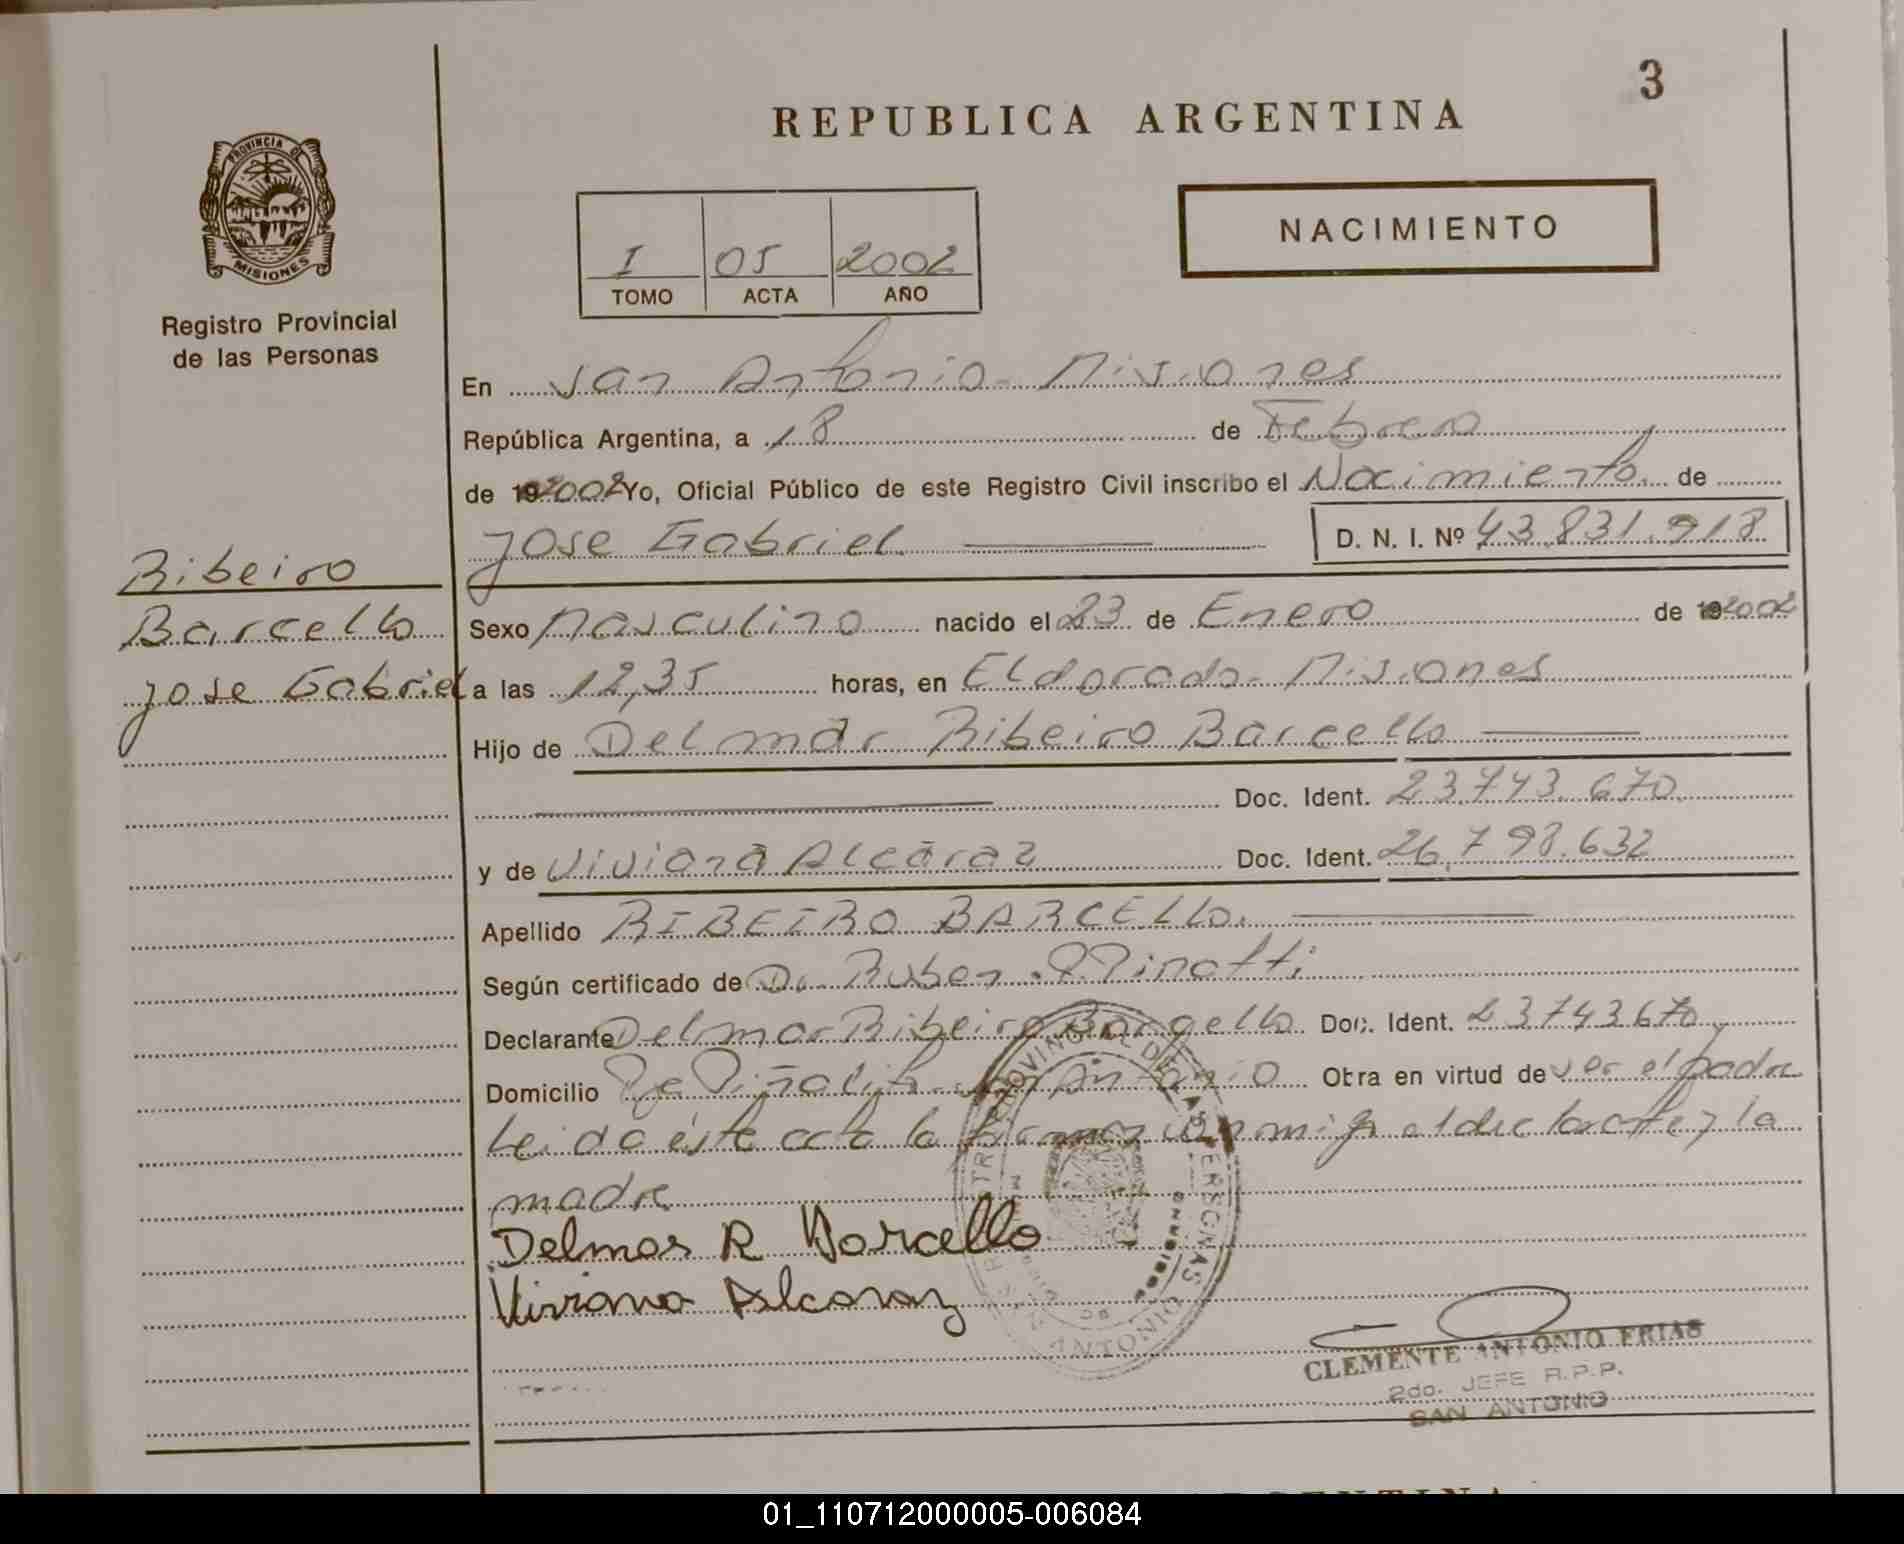 3
REPUBLICA ARGENTINA
PROVINCIA DE
MISIONES
Registro Provincial
de las Personas
NACIMIENTO
I 05 2002
TOMO ACTA AÑO
En San Antonio - Misiones
República Argentina, a 18 de Febrero
de 192002 Yo, Oficial Público de este Registro Civil inscribo el Nacimiento de
Jose Gabriel D. N. I. Nº 43.831.918
Ribeiro
Barcello
Jose Gabriel
Sexo Masculino nacido el 23 de Enero de 192002
a las 12,35 horas, en Eldorado - Misiones
Hijo de Delmar Ribeiro Barcello
Doc. Ident. 23.743.670
y de Viviana Alcaraz Doc. Ident. 26.798.632
Apellido RIBEIRO BARCELLO.
Según certificado de Dr Ruben Minotti
Declarante Delmar Ribeiro Barcello Doc. Ident. 23743670
Domicilio Pje Piñalito San Antonio Obra en virtud de ser el padre
Leida éste acta la firman con migo el declarante y la
madre
Delmar R Barcello
Viviana Alcaraz
CLEMENTE ANTONIO FRIAS
2do. JEFE R.P.P.
SAN ANTONIO
01_110712000005-006084